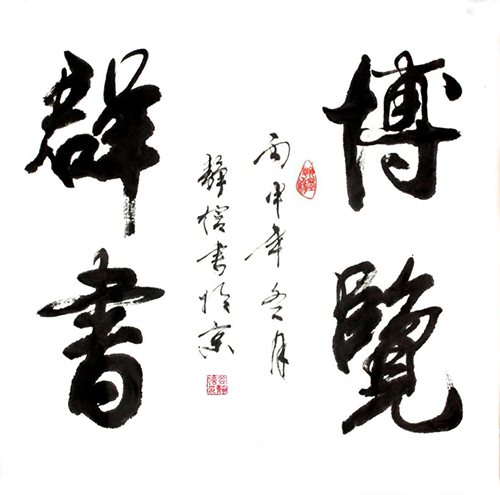 博覽
群書
丙申年冬月
靜書於京